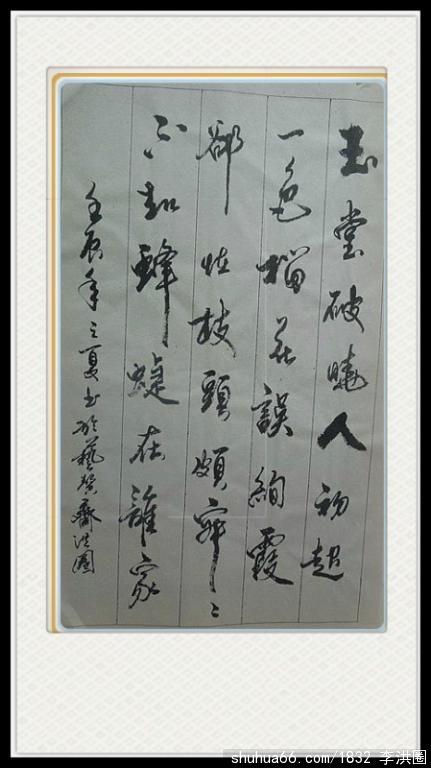 玉堂破曉人初起
一色榴花誤絢霞
郤恠枝頭頗寂〻
不知蜂蜨在誰家
壬辰年之夏書於藝癸齋洪圈
shuhua66.com/1832 李洪圈